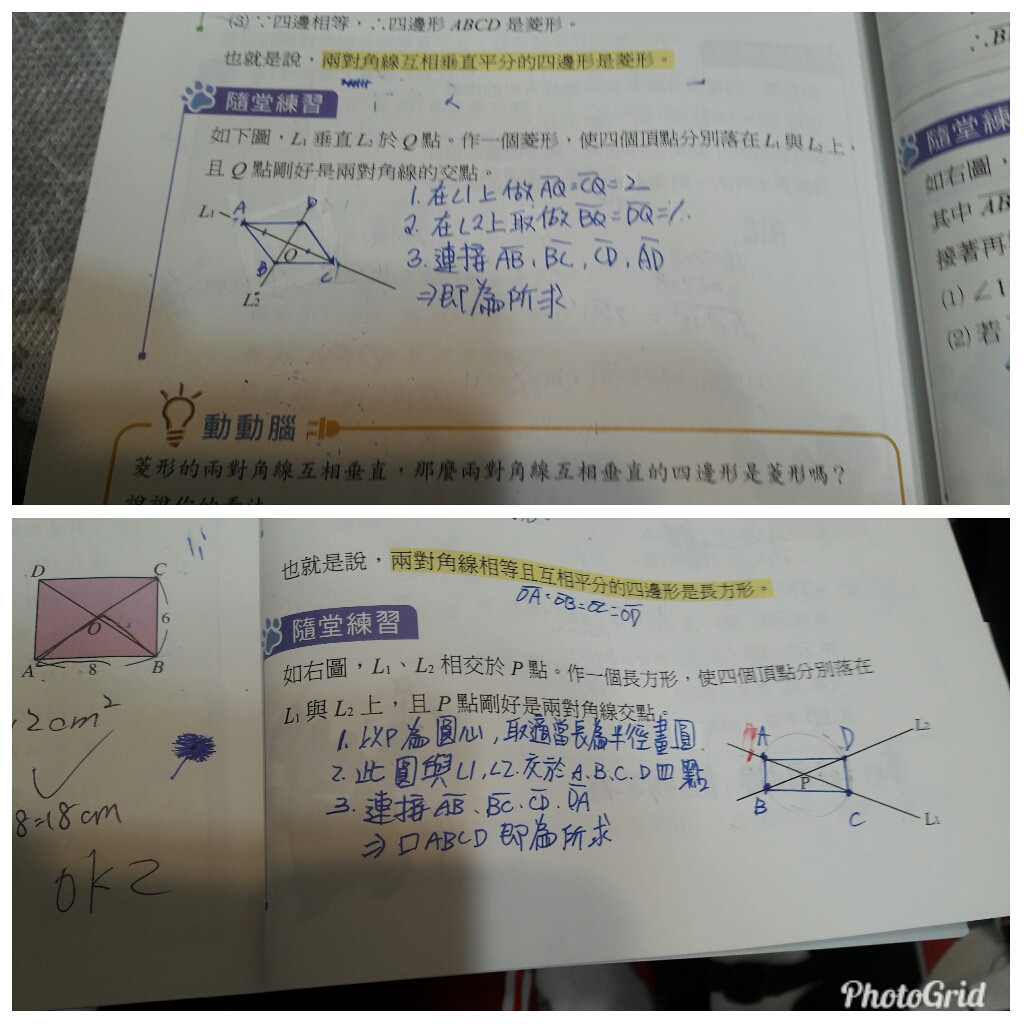 (3) ∵四邊相等，∴四邊形 ABCD 是菱形。
也就是說，兩對角線互相垂直平分的四邊形是菱形。
隨堂練習
如下圖，L1 垂直 L2 於 Q 點。作一個菱形，使四個頂點分別落在 L1 與 L2 上，
且 Q 點剛好是兩對角線的交點。
1. 在L1上做 AQ=CQ=2
2. 在L2上取做 BQ=DQ=1.
3. 連接 AB、BC、CD、AD
⇒即為所求
L1
A
D
Q
B
C
L2
動動腦
菱形的兩對角線互相垂直，那麼兩對角線互相垂直的四邊形是菱形嗎？
隨堂練
如右圖，
其中 AB
接著再
(1) ∠1
(2) 若
D
C
O
6
A
8
B
2cm²
8=18cm
ok2
也就是說，兩對角線相等且互相平分的四邊形是長方形。
OA=OB=OC=OD
隨堂練習
如右圖，L1、L2 相交於 P 點。作一個長方形，使四個頂點分別落在
L1 與 L2 上，且 P 點剛好是兩對角線交點。
1. 以P為圓心，取適當長為半徑畫圓.
2. 此圓與L1,L2.交於 A.B.C.D四點
3. 連接 AB、BC、CD、DA
⇒ 口ABCD 即為所求
L2
A
D
P
B
C
L1
PhotoGrid